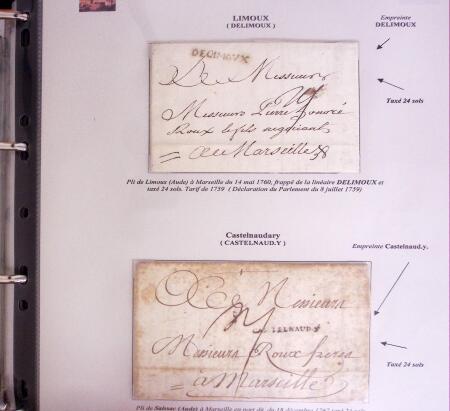 LIMOUX
( DELIMOUX )
Empreinte
DELIMOUX
DELIMOUX
A Messieurs
Messieurs Pierre honoré
Roux le fils negotiant
= A Marseille
Taxé 24 sols
Pli de Limoux (Aude) à Marseille du 14 mai 1760, frappé de la linéaire DELIMOUX et
taxé 24 sols. Tarif de 1759 ( Déclaration du Parlement du 8 juillet 1759)
Castelnaudary
( CASTELNAUD.Y )
Empreinte Castelnaud.y.
A Messieurs
CASTELNAUD.Y
Messieurs Roux freres
= a Marseille
Taxé 24 sols
Pli de (Aude) à Marseille au port dû, du 18 décembre 1767 taxé 24 sols